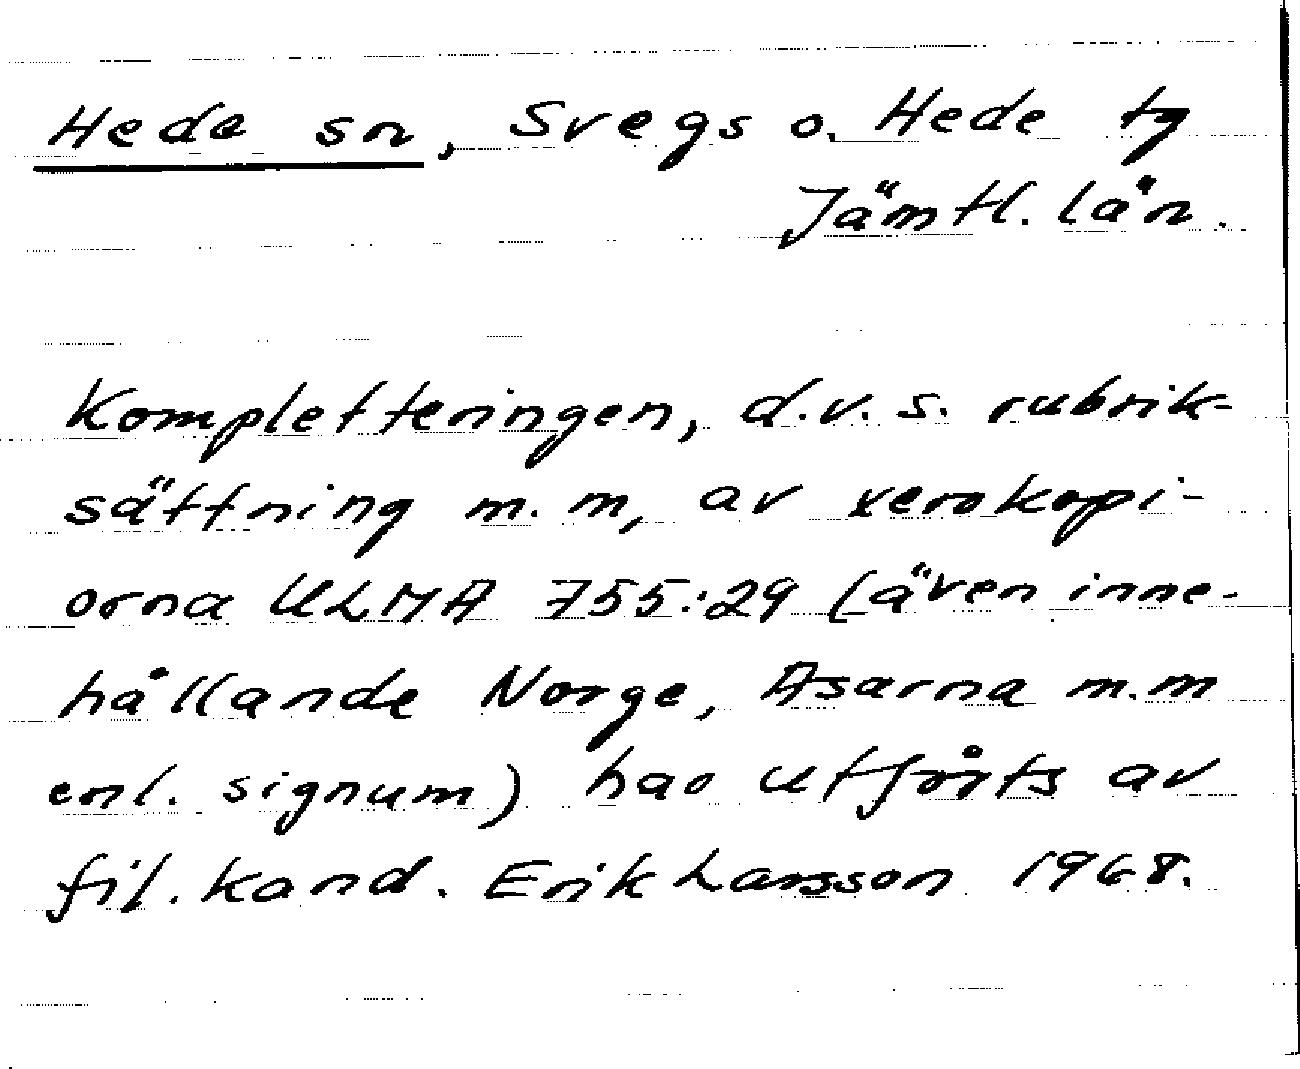 Hede sn, Svegs o. Hede tg
Jämtl. län.
Kompletteringen, d.v.s. rubrik-
sättning m.m, av xerokopi-
orna ULMA 755:29 (även inne-
hållande Norge, Åsarna m.m
enl. signum) har utförts av
fil. kand. Erik Larsson 1968.